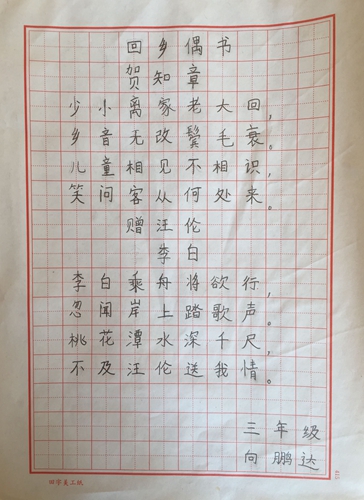 回乡偶书
贺知章
少小离家老大回，
乡音无改鬓毛衰。
儿童相见不相识，
笑问客从何处来。
赠汪伦
李白
李白乘舟将欲行，
忽闻岸上踏歌声。
桃花潭水深千尺，
不及汪伦送我情。
三年级
向鹏达